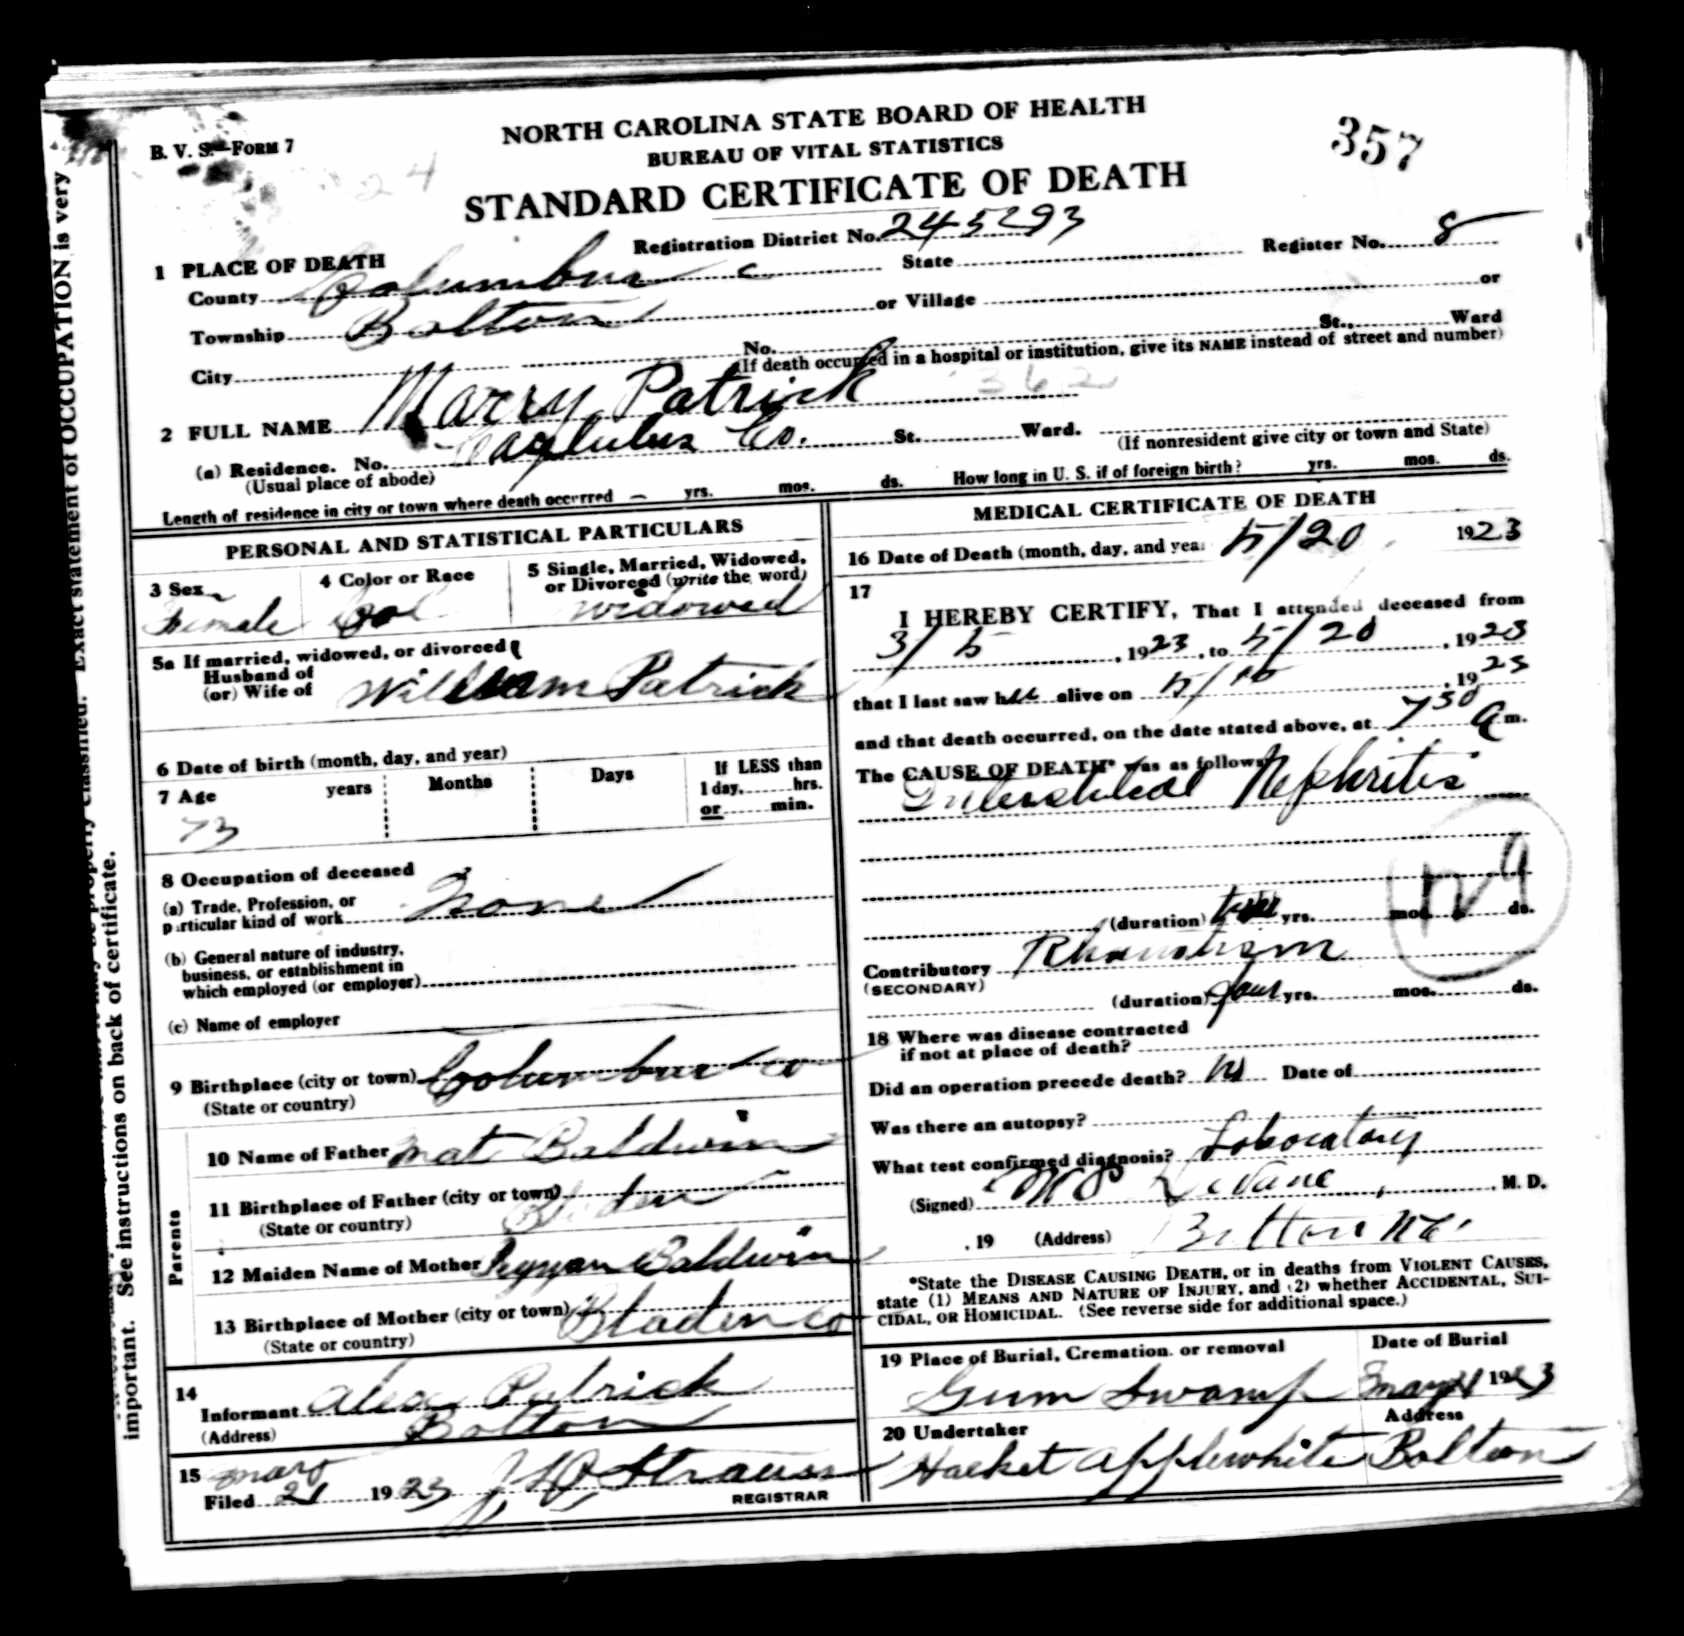 357
B. V. S.—FORM 7
24
NORTH CAROLINA STATE BOARD OF HEALTH
BUREAU OF VITAL STATISTICS
STANDARD CERTIFICATE OF DEATH
1 PLACE OF DEATH
Registration District No. 245293
State
Register No. 8
County Columbus
Township Bolton or Village or
City No. St., Ward
(If death occurred in a hospital or institution, give its NAME instead of street and number)
362
2 FULL NAME Marry Patrick
(a) Residence. No. Co. St. Ward.
(Usual place of abode)
(If nonresident give city or town and State)
Length of residence in city or town where death occurred yrs. mos. ds. How long in U. S. if of foreign birth? yrs. mos. ds.
PERSONAL AND STATISTICAL PARTICULARS
3 Sex Female
4 Color or Race Col
5 Single, Married, Widowed, or Divorced (write the word) Widowed
5a If married, widowed, or divorced
Husband of
(or) Wife of William Patrick
6 Date of birth (month, day, and year)
7 Age years Months Days If LESS than 1 day, hrs. or min.
73
8 Occupation of deceased
(a) Trade, Profession, or
particular kind of work None
(b) General nature of industry,
business, or establishment in
which employed (or employer)
(c) Name of employer
9 Birthplace (city or town) Columbus co
(State or country)
Parents
10 Name of Father Mat Baldwin
11 Birthplace of Father (city or town) Bladen
(State or country)
12 Maiden Name of Mother Baldwin
13 Birthplace of Mother (city or town) Bladen co
(State or country)
14
Informant Alex Patrick
(Address) Bolton
15
Filed 21 1923 Strauss
REGISTRAR
MEDICAL CERTIFICATE OF DEATH
16 Date of Death (month, day, and year 5/20 1923
17
I HEREBY CERTIFY, That I attended deceased from
3/5, 1923, to 5/20, 1923
that I last saw her alive on 5/, 1923
and that death occurred, on the date stated above, at 7 30 a m.
The CAUSE OF DEATH* was as follows:
Interstitial Nephritis
129
(duration) yrs. mos. ds.
Contributory Rhumatism
(SECONDARY)
(duration) four yrs. mos. ds.
18 Where was disease contracted
if not at place of death?
Did an operation precede death? No Date of
Was there an autopsy?
What test confirmed diagnosis? Laboratory
(Signed) DeVane, M. D.
, 19 (Address) Bolton NC.
*State the DISEASE CAUSING DEATH, or in deaths from VIOLENT CAUSES,
state (1) MEANS AND NATURE OF INJURY, and (2) whether ACCIDENTAL, SUI-
CIDAL, OR HOMICIDAL. (See reverse side for additional space.)
19 Place of Burial, Cremation. or removal
Date of Burial
Gum Swamp May 21 1923
20 Undertaker
Address
Hacket Applewhite Bolton
Exact statement of OCCUPATION is very
important. See instructions on back of certificate.